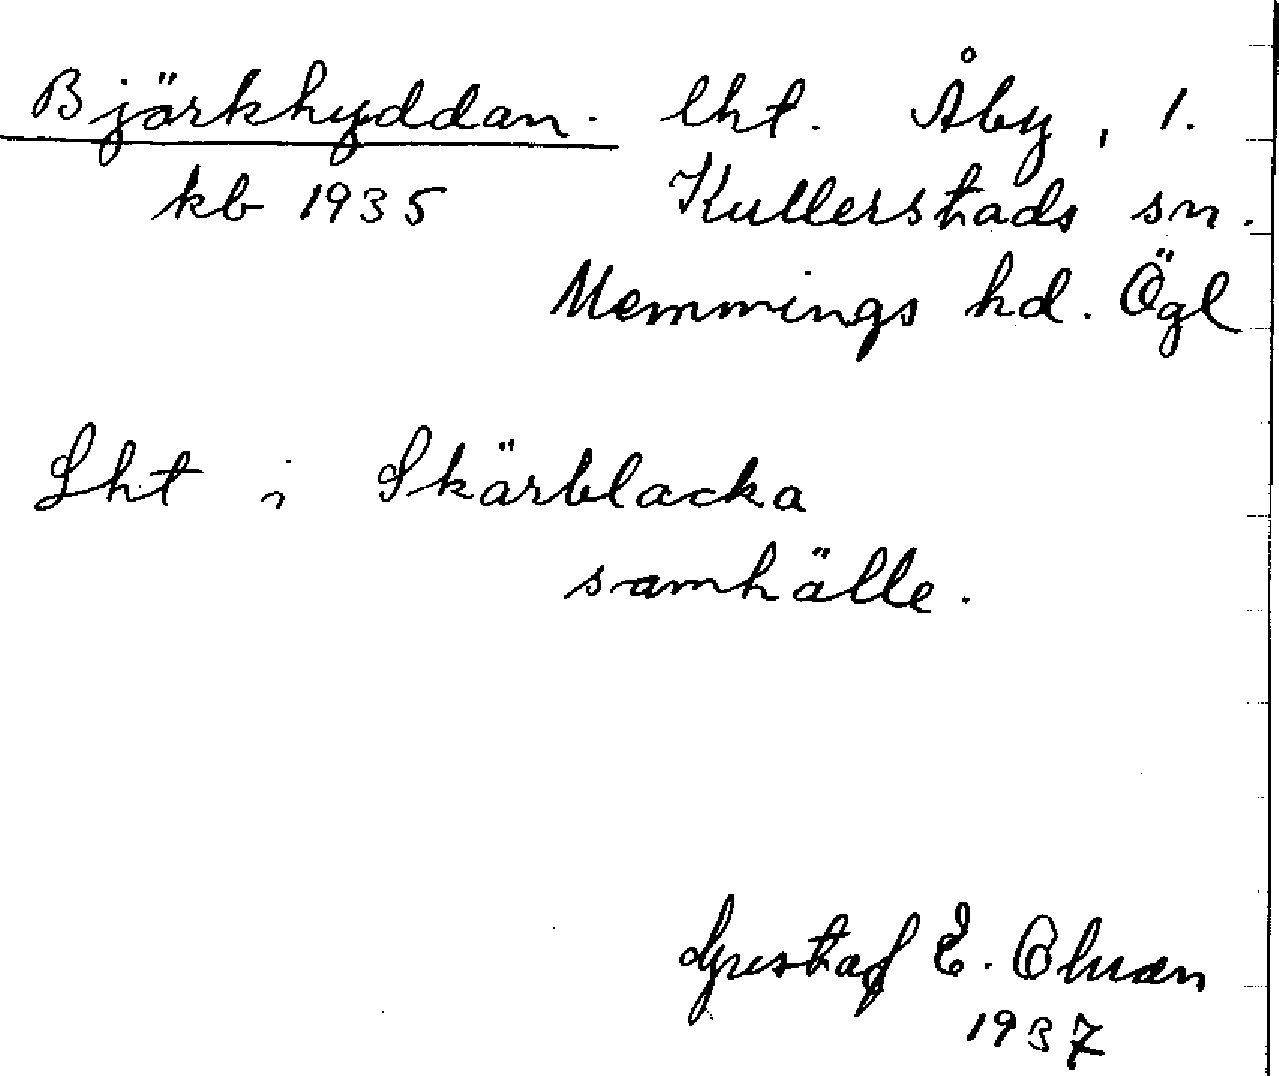 Björkhyddan. lht. Åby, 1.
kb 1935 Kullerstads sn.
Memmings hd. Ögl
Lht i Skärblacka
samhälle.
Gustaf E. Ohman
1937